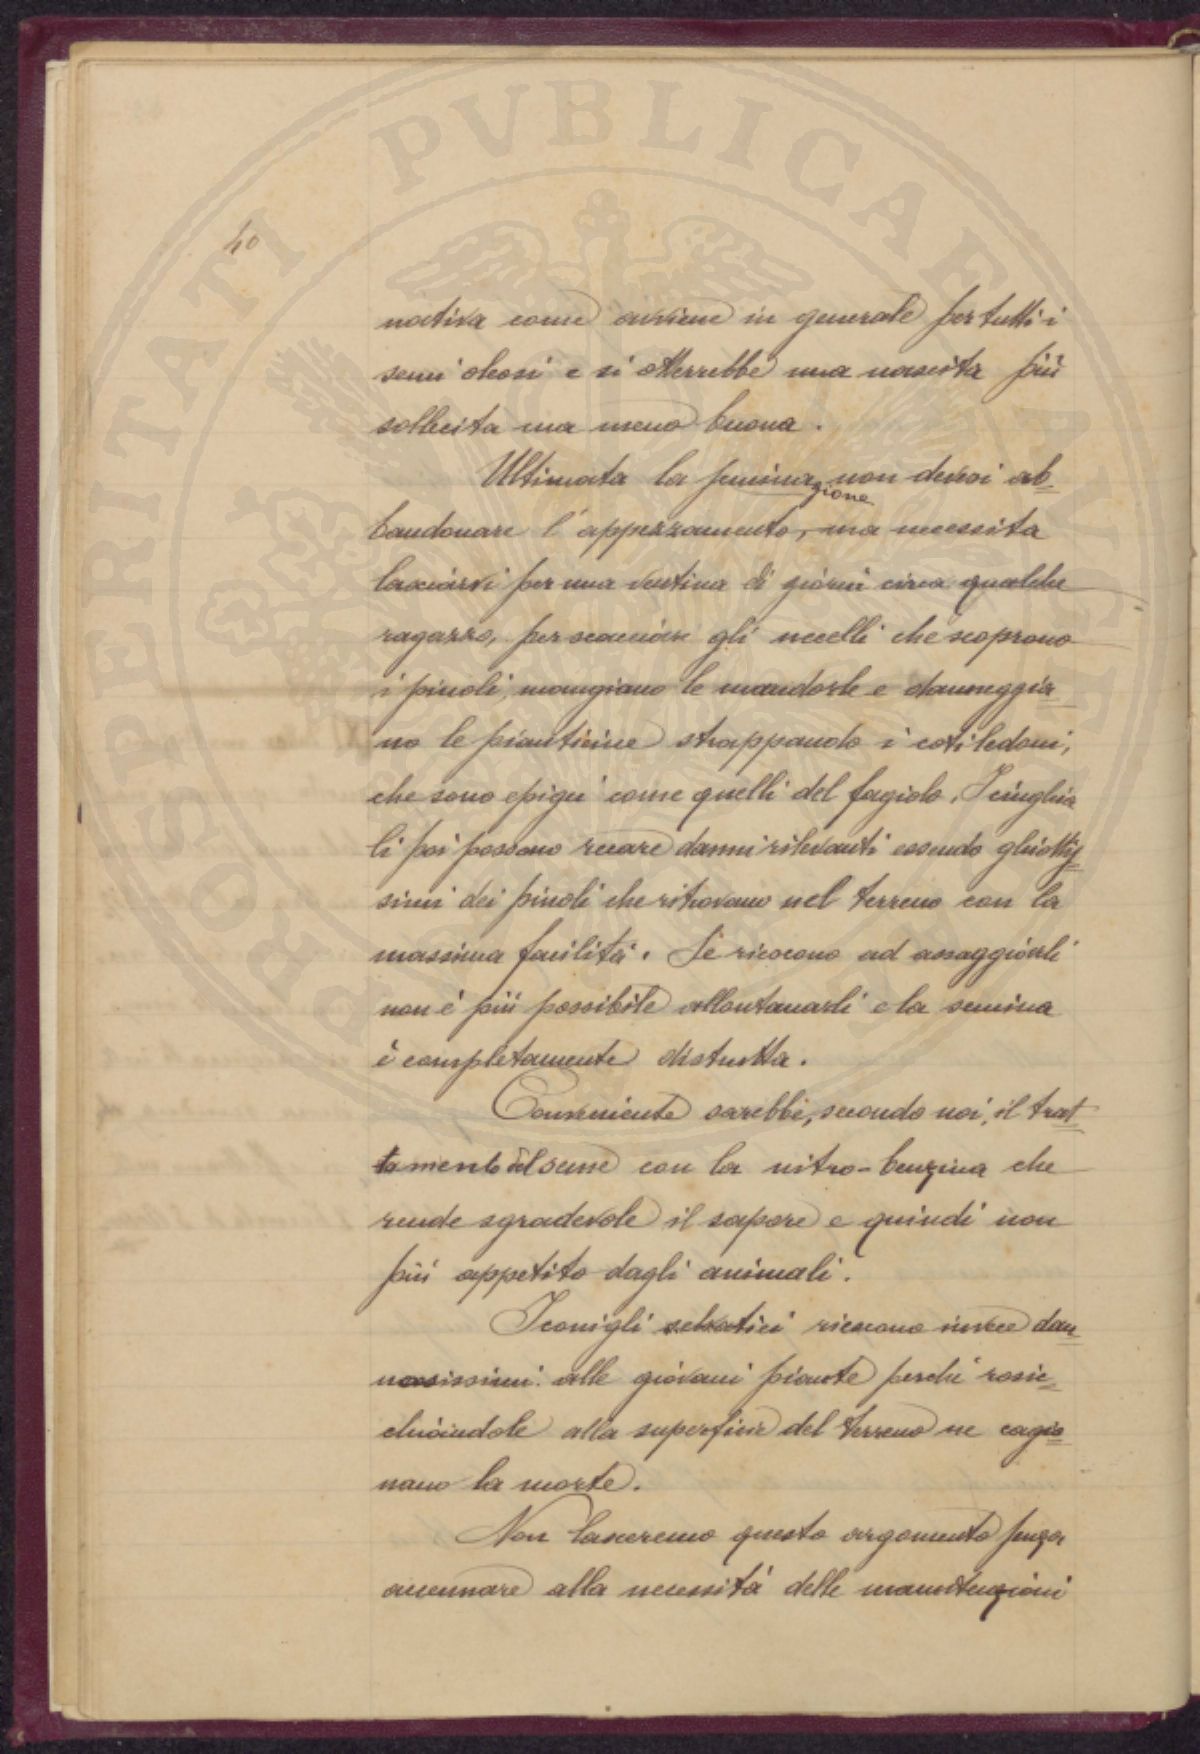 PROSPERITATI PVBLICAE AVGENDAE
40
nativa come avviene in generale per tutti i
semi oleosi e si otterrebbe una nascita più
sollecita ma meno buona.
Ultimata la seminagione non devesi ab-
bandonare l'appezzamento, ma necessita
lasciarvi per una ventina di giorni circa qualche
ragazzo, per scacciare gli uccelli che scoprono
i pinoli, mangiano le mandorle e danneggia-
no le pianticine strappando i cotiledoni,
che sono epigei come quelli del fagiolo. I cinghia
li poi possono recare danni rilevanti essendo ghiottis-
simi dei pinoli che ritrovano nel terreno con la
massima facilità. Se riescono ad assaggiarli
non è più possibile allontanarli e la semina
è completamente distrutta.
Conveniente sarebbe, secondo noi, il trat-
tamento del seme con la nitro-benzina che
rende sgradevole il sapore e quindi non
più appetito dagli animali.
I conigli selvatici riescono invece dan-
nosissimi alle giovani piante perchè rosic-
chiandole alla superficie del terreno ne cagio-
nano la morte.
Non lasceremo questo argomento senza
accennare alla necessità delle manutenzioni